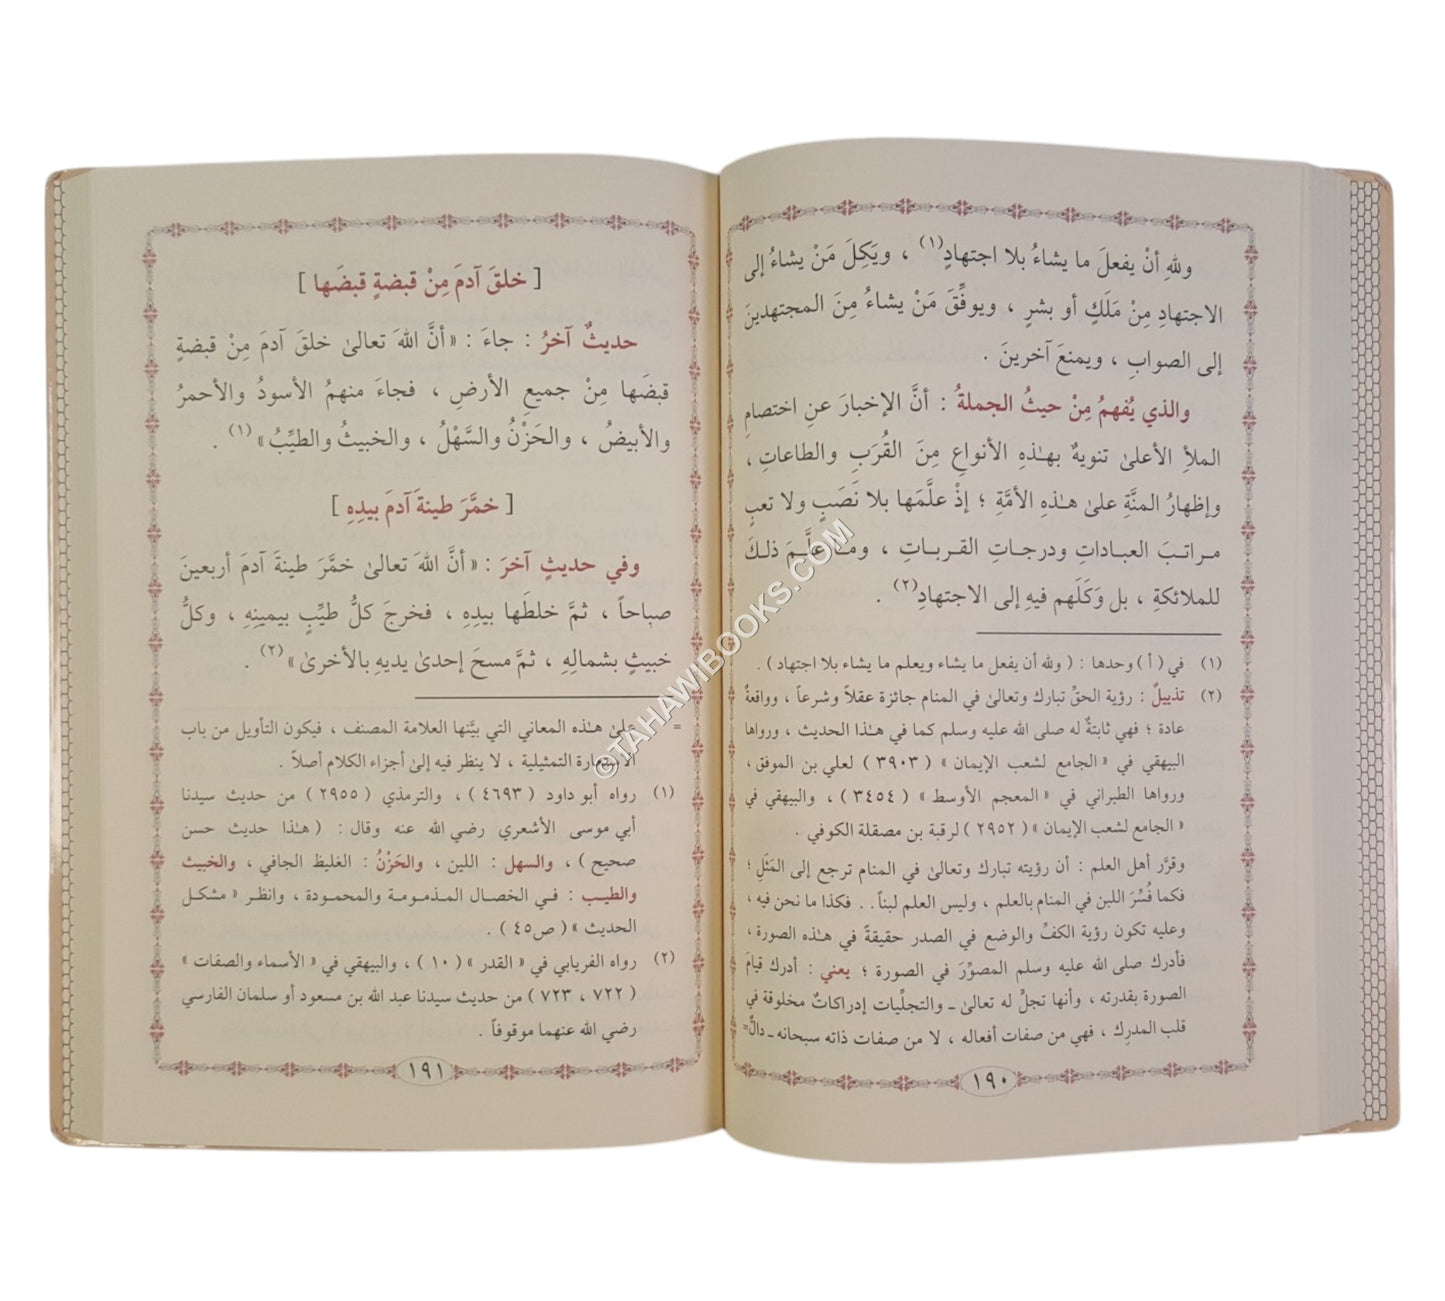 وللهِ أنْ يفعلَ ما يشاءُ بلا اجتهادٍ(١) ، ويَكِلَ مَنْ يشاءُ إلى
الاجتهادِ مِنْ مَلَكٍ أو بشرٍ ، ويوفِّقَ مَنْ يشاءُ مِنَ المجتهدينَ
إلى الصوابِ ، ويمنعَ آخرينَ .
والذي يُفهمُ مِنْ حيثُ الجملةُ : أنَّ الإخبارَ عنِ اختصامِ
الملأِ الأعلىٰ تنويهٌ بهـٰذهِ الأنواعِ مِنَ القُرَبِ والطاعاتِ ،
وإظهارُ المنَّةِ علىٰ هـٰذهِ الأمَّةِ ؛ إذْ علَّمَها بلا نَصَبٍ ولا تعبٍ
مراتبَ العباداتِ ودرجاتِ القرباتِ ، وما علَّمَ ذلكَ
للملائكةِ ، بل وَكَلَهم فيهِ إلى الاجتهادِ(٢) .
(١) في ( أ ) وحدها : ( ولله أن يفعل ما يشاء ويعلم ما يشاء بلا اجتهاد ) .
(٢) تذييلٌ : رؤية الحقِّ تبارك وتعالىٰ في المنام جائزة عقلاً وشرعاً ، وواقعةٌ
عادة ؛ فهي ثابتةٌ له صلى الله عليه وسلم كما في هـٰذا الحديث ، ورواها
البيهقي في « الجامع لشعب الإيمان » ( ٣٩٠٣ ) لعلي بن الموفق ،
ورواها الطبراني في « المعجم الأوسط » ( ٣٤٥٤ ) ، والبيهقي في
« الجامع لشعب الإيمان » ( ٢٩٥٢ ) لرقبة بن مصقلة الكوفي .
وقرَّر أهل العلم : أن رؤيته تبارك وتعالىٰ في المنام ترجع إلى المَثَلِ ؛
فكما فُسِّرَ اللبن في المنام بالعلم ، وليس العلم لبناً .. فكذا ما نحن فيه ،
وعليه تكون رؤية الكفِّ والوضع في الصدر حقيقةً في هـٰذه الصورة ،
فأدرك صلى الله عليه وسلم المصوِّرَ في الصورة ؛ يعني : أدرك قيامَ
الصورة بقدرته ، وأنها تجلٍّ له تعالىٰ ـ والتجلِّيات إدراكاتٌ مخلوقة في
قلب المدرِك ، فهي من صفات أفعاله ، لا من صفات ذاته سبحانه ـ دالٌّ =
١٩٠
[ خلقَ آدمَ مِنْ قبضةٍ قبضَها ]
حديثٌ آخرُ : جاءَ : « أنَّ اللهَ تعالىٰ خلقَ آدمَ مِنْ قبضةٍ
قبضَها مِنْ جميعِ الأرضِ ، فجاءَ منهمُ الأسودُ والأحمرُ
والأبيضُ ، والحَزْنُ والسَّهْلُ ، والخبيثُ والطيِّبُ »(١) .
[ خمَّرَ طينةَ آدمَ بيدِهِ ]
وفي حديثٍ آخرَ : « أنَّ اللهَ تعالىٰ خمَّرَ طينةَ آدمَ أربعينَ
صباحاً ، ثمَّ خلطَها بيدِهِ ، فخرجَ كلُّ طيِّبٍ بيمينِهِ ، وكلُّ
خبيثٍ بشمالِهِ ، ثمَّ مسحَ إحدىٰ يديهِ بالأخرىٰ »(٢) .
= علىٰ هـٰذه المعاني التي بيَّنها العلامة المصنف ، فيكون التأويل من باب
الاستعارة التمثيلية ، لا ينظر فيه إلىٰ أجزاء الكلام أصلاً .
(١) رواه أبو داود ( ٤٦٩٣ ) ، والترمذي ( ٢٩٥٥ ) من حديث سيدنا
أبي موسى الأشعري رضي الله عنه وقال : ( هـٰذا حديث حسن
صحيح ) ، والسهل : اللين ، والحَزْنُ : الغليظ الجافي ، والخبيث
والطيب : في الخصال المذمومة والمحمودة ، وانظر « مشكل
الحديث » ( ص٤٥ ) .
(٢) رواه الفريابي في « القدر » ( ١٠ ) ، والبيهقي في « الأسماء والصفات »
( ٧٢٢ ، ٧٢٣ ) من حديث سيدنا عبد الله بن مسعود أو سلمان الفارسي
رضي الله عنهما موقوفاً .
١٩١
©TAHAWIBOOKS.COM